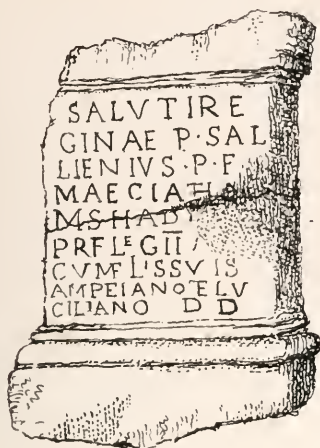 SALVTI RE
GINAE P·SAL
LIENIVS·P·F
MAECIA
MS HAD
PRF LEG II
CVM FLIS SVIS
AMPEIANO ET LV
CILIANO D D